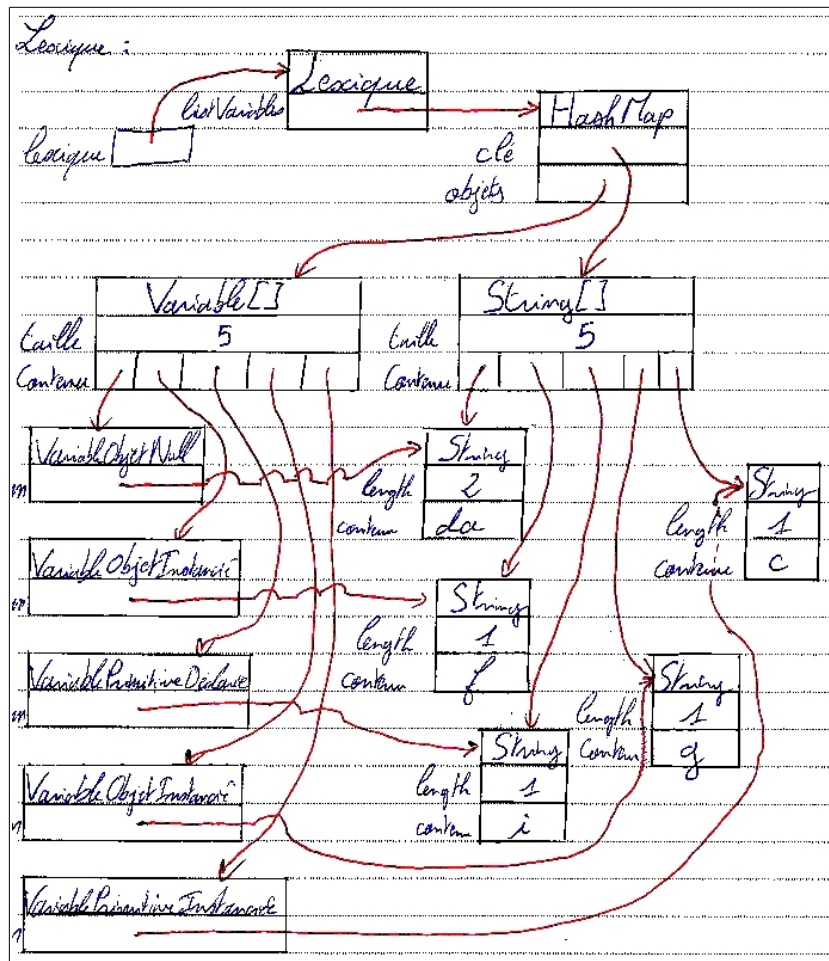 Lexique :
Lexique
listVariables
lexique
HashMap
clé
objets
Variable[]
taille 5
Contenu
String[]
taille 5
Contenu
VariableObjetNull
m
String
length 2
contenu da
String
length 1
contenu c
VariableObjetInstancié
m
String
length 1
contenu f
VariablePrimitiveDéclarée
m
String
length 1
contenu g
String
length 1
contenu i
VariableObjetInstancié
n
VariablePrimitiveInstanciée
n